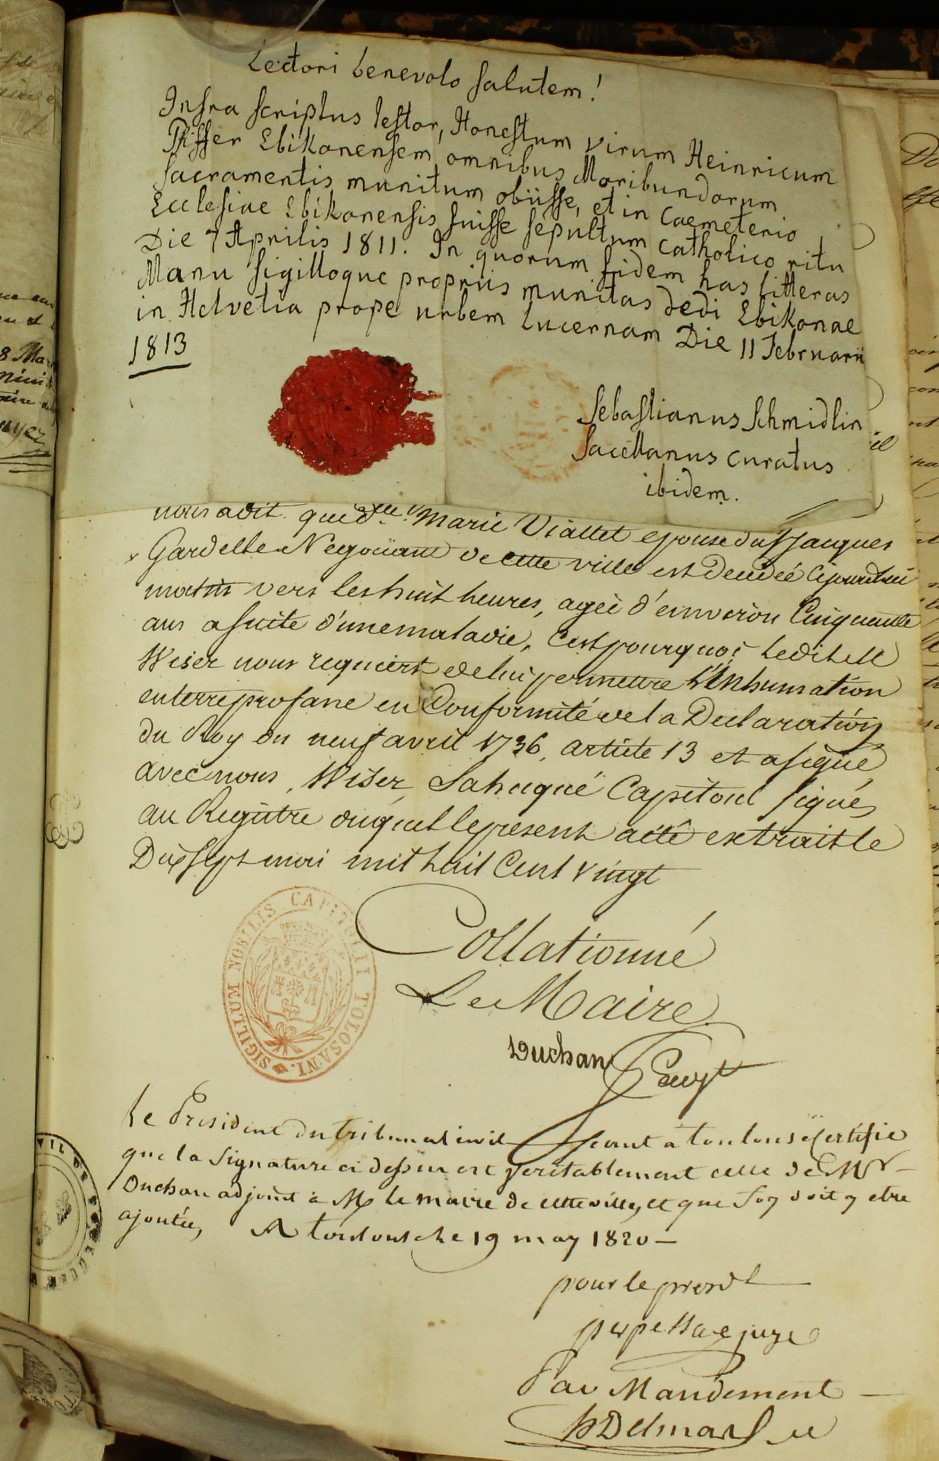 Lectori benevolo salutem!
Infra scriptus testor, Honestum virum Heinricum
Pfisser Ebikonensem omnibus Moribundorum
Sacramentis munitum obiisse, et in Caemeterio
Ecclesiae Ebikonensis fuisse sepultum catholico ritu
Die 7 Aprilis 1811. In quorum fidem has litteras
Manu Sigilloque propriis munitas dedi Ebikonae
in Helvetia prope urbem Lucernam Die 11 Februarii
1813
Sebastianus Schmidlin
Sacellanus curatus
ibidem.
nous a dit que dlle Marie Viallet epouse du Sr Jacques
Gardelle Negociant de cette ville est decedée cejourdhui
matin vers les huit heures, agée d'environ Cinquante
ans a suite d'une maladie, C'est pourquoi ledit
Wiser nous requiert de lui permettre L'Inhumation
en terre profane en Conformité de la Declaration
du Roy du neuf avril 1736, article 13 et a signé
avec nous, Wiser, Capitoul signés
au Registre duquel le present acte extrait le
Dix sept mai mil huit Cent vingt
Collationné
Le Maire
Duchan
SIGILLUM NOBILIS CAPITULI TOLOSANI
Le President du tribunal civil Seant à toulouse Certifie
que la Signature ci dessus est veritablement celle de Mr
Duchan adjoint à Mr le maire de cette ville, et que foy doit y etre
ajoutée, A toulouse le 19 may 1820
pour le presdt
juge
Par Mandement